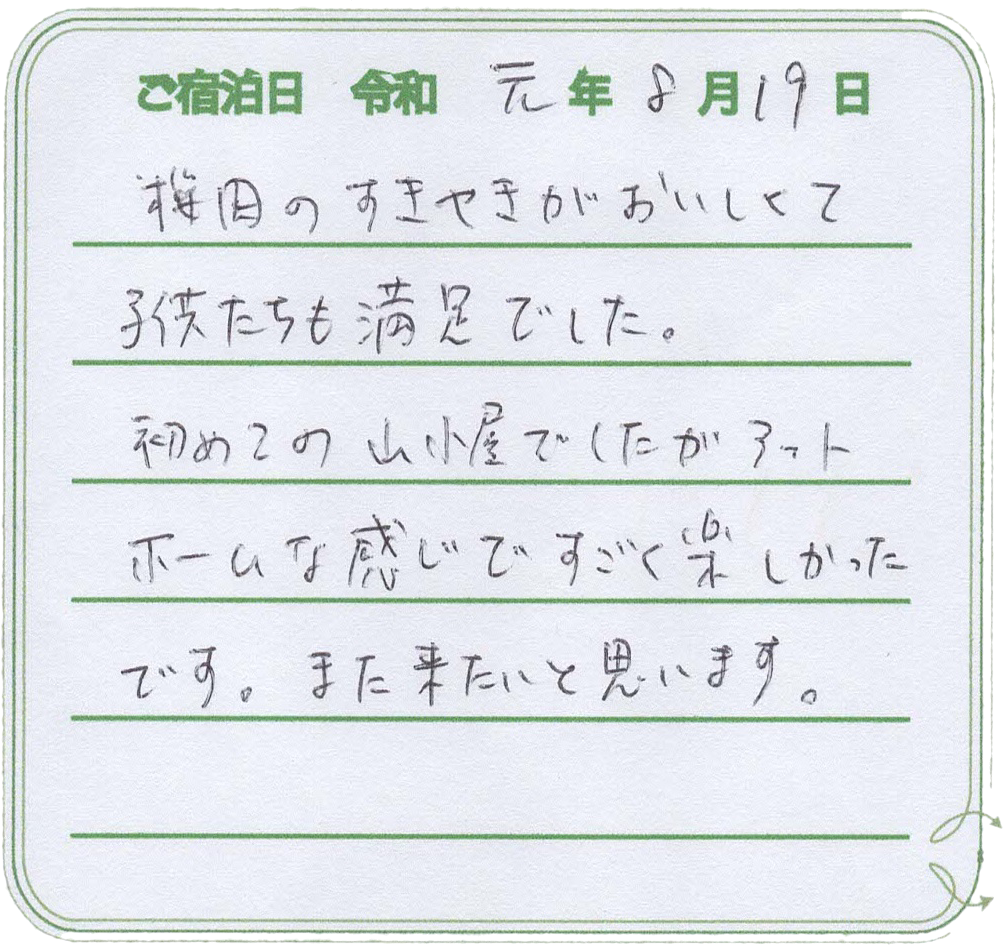 ご宿泊日 令和 元年 8月19日
のすきやきがおいしくて
子供たちも満足でした。
初めての山小屋でしたがアット
ホームな感じですごく楽しかった
です。また来たいと思います。